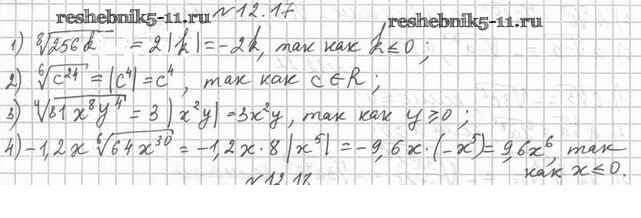 №12.17
reshebnik5-11.ru reshebnik5-11.ru
1) ⁸√256k⁸ = 2|k| = -2k, так как k ≤ 0;
2) ⁶√c²⁴ = |c⁴| = c⁴, так как c ∈ R;
3) ⁴√81x⁸y⁴ = 3|x²y| = 3x²y, так как y ≥ 0;
4) -1,2x ⁶√64x³⁰ = -1,2x·8|x⁵| = -9,6x·(-x⁵) = 9,6x⁶, так
как x ≤ 0.
№12.18